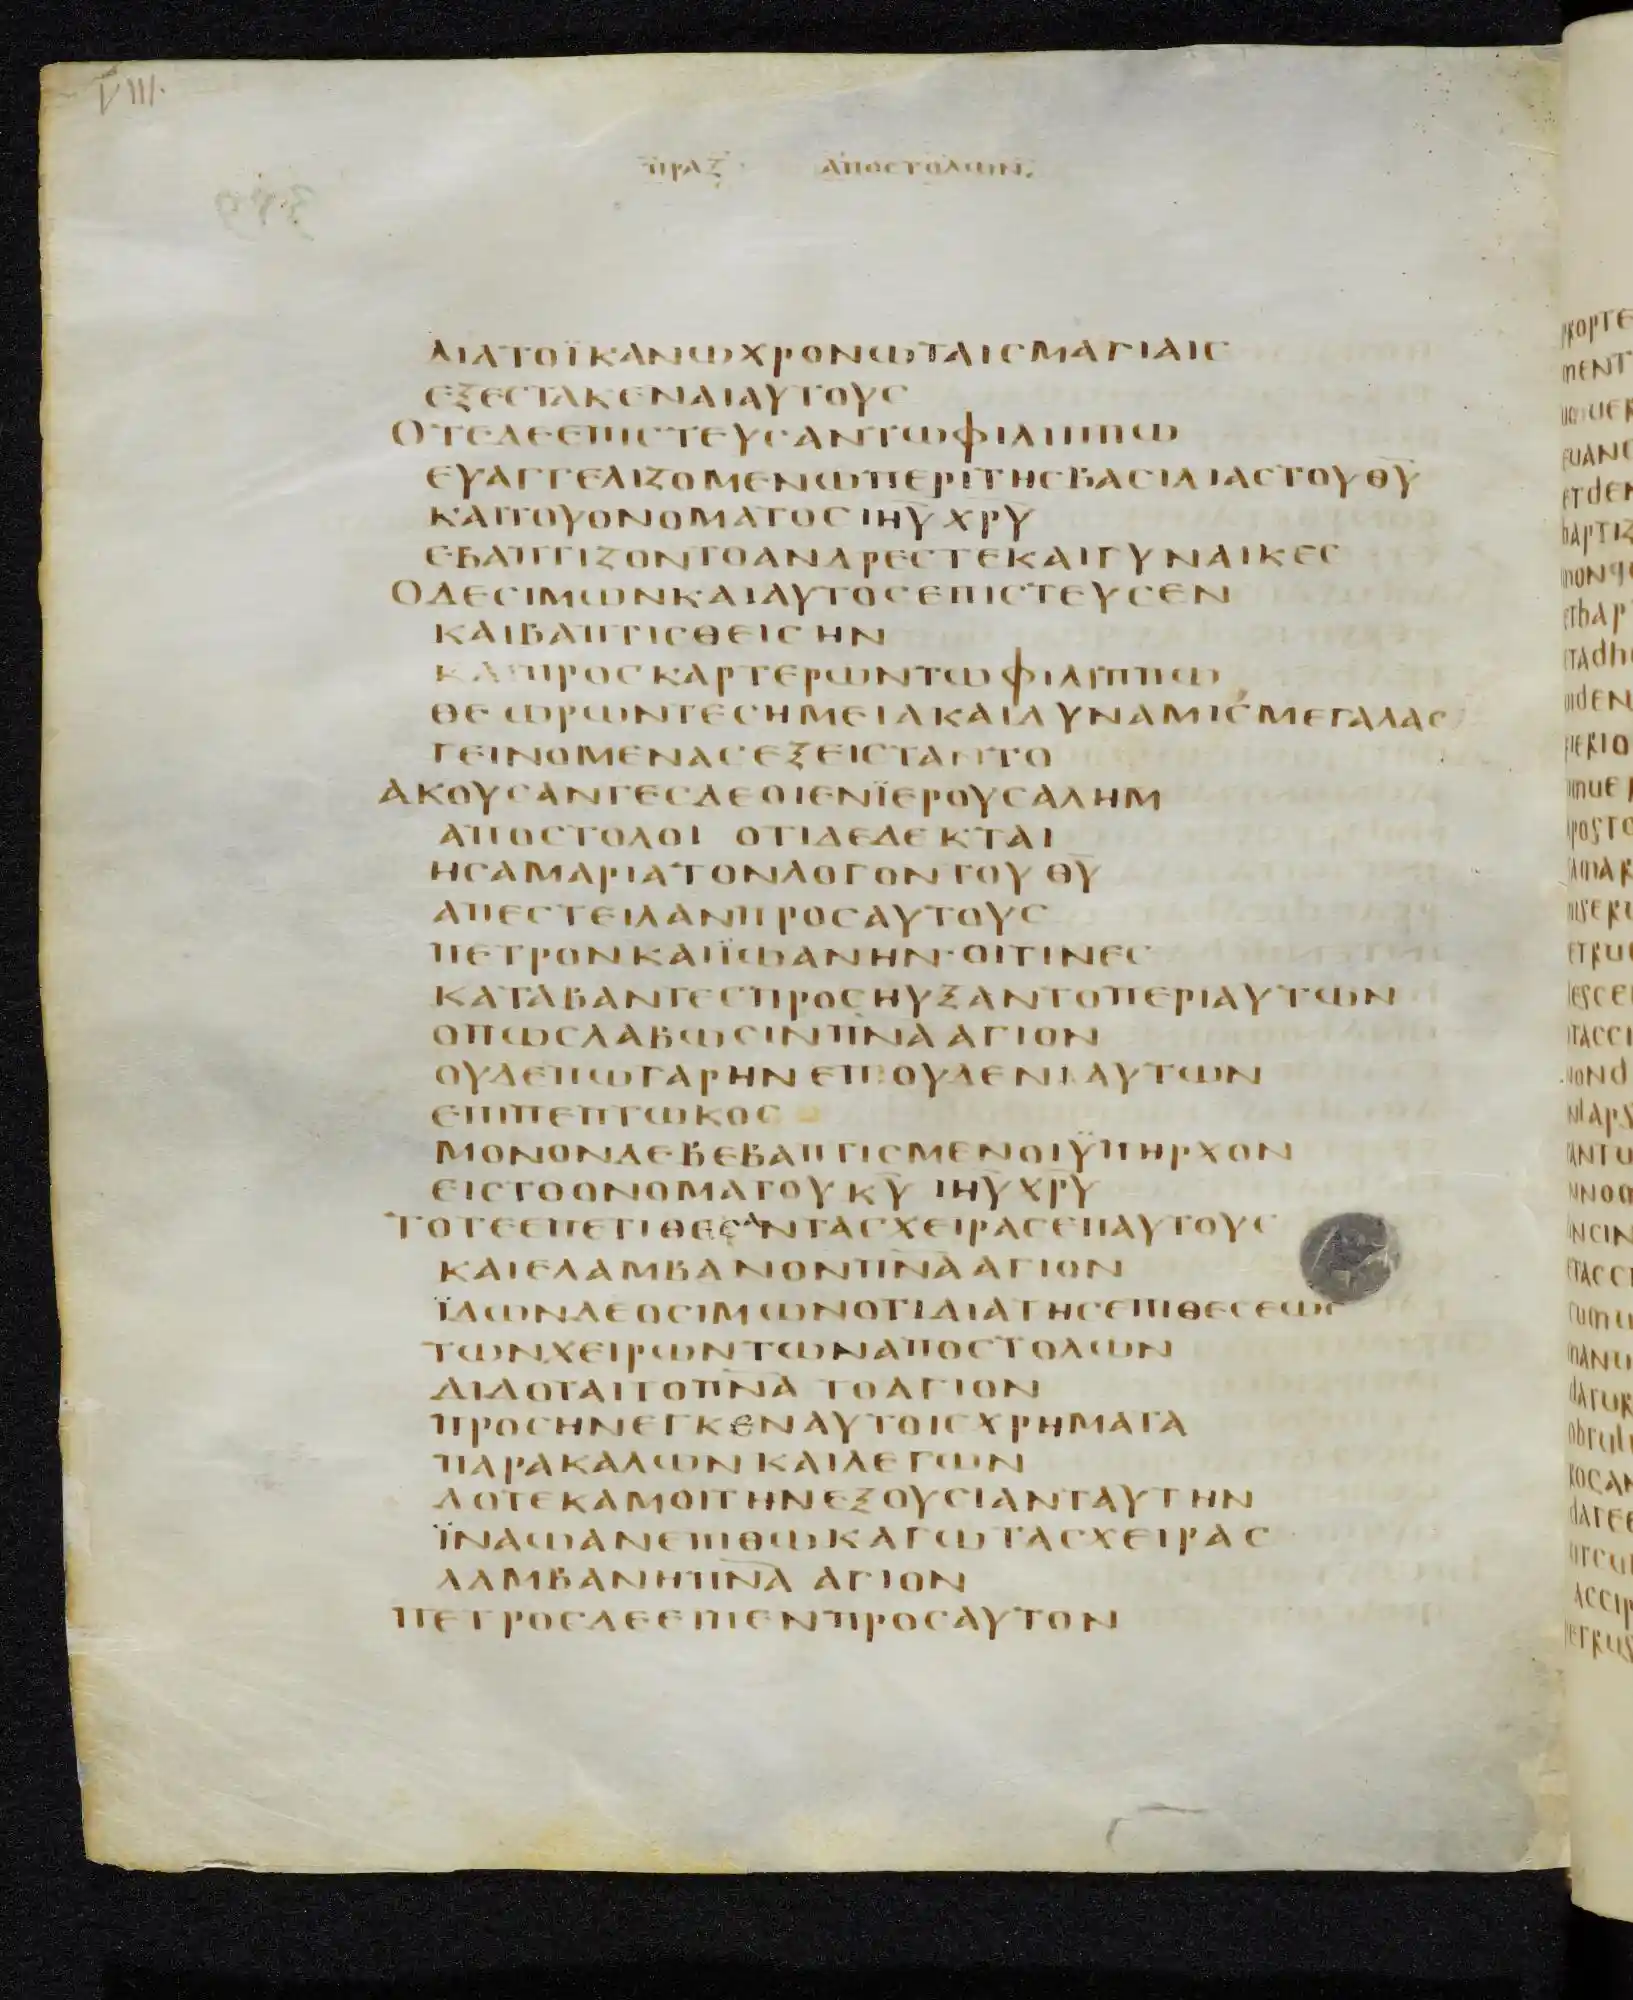 VIII.
ΠΡΑΞ· ΑΠΟСΤΟΛΩΝ.
ΔΙΑΤΟΪΚΑΝΩΧΡΟΝΩΤΑΙСΜΑΓΙΑΙС
ΕΞΕСΤΑΚΕΝΑΙΑΥΤΟΥС
ΟΤΕΔΕΕΠΙСΤΕΥСΑΝΤΩΦΙΛΙΠΠΩ
ΕΥΑΓΓΕΛΙΖΟΜΕΝΩΠΕΡΙΤΗСΒΑСΙΛΙΑСΤΟΥΘ̅Υ̅
ΚΑΙΤΟΥΟΝΟΜΑΤΟСΙΗ̅Υ̅ ΧΡ̅Υ̅
ΕΒΑΠΤΙΖΟΝΤΟΑΝΔΡΕСΤΕΚΑΙΓΥΝΑΙΚΕС
ΟΔΕСΙΜΩΝΚΑΙΑΥΤΟСΕΠΙСΤΕΥСΕΝ
ΚΑΙΒΑΠΤΙСΘΕΙСΗΝ
ΚΑΙΠΡΟСΚΑΡΤΕΡΩΝΤΩΦΙΛΙΠΠΩ
ΘΕΩΡΩΝΤΕСΗΜΕΙΑΚΑΙΔΥΝΑΜΙСΜΕΓΑΛΑС
ΓΕΙΝΟΜΕΝΑСΕΞΕΙСΤΑΝΤΟ
ΑΚΟΥСΑΝΤΕСΔΕΟΙΕΝΪΕΡΟΥСΑΛΗΜ
ΑΠΟСΤΟΛΟΙ ΟΤΙΔΕΔΕΚΤΑΙ
ΗСΑΜΑΡΙΑΤΟΝΛΟΓΟΝΤΟΥΘ̅Υ̅
ΑΠΕСΤΕΙΛΑΝΠΡΟСΑΥΤΟΥС
ΠΕΤΡΟΝΚΑΙΪΩΑΝΗΝ·ΟΙΤΙΝΕС
ΚΑΤΑΒΑΝΤΕСΠΡΟСΗΥΞΑΝΤΟΠΕΡΙΑΥΤΩΝ
ΟΠΩСΛΑΒΩСΙΝΠ̅Ν̅Α̅ΑΓΙΟΝ
ΟΥΔΕΠΩΓΑΡΗΝΕΠΙΟΥΔΕΝΙΑΥΤΩΝ
ΕΠΙΠΕΠΤΩΚΟС
ΜΟΝΟΝΔΕΒΕΒΑΠΤΙСΜΕΝΟΙΫΠΗΡΧΟΝ
ΕΙСΤΟΟΝΟΜΑΤΟΥΚ̅Υ̅ ΙΗ̅Υ̅ΧΡ̅Υ̅
ΤΟΤΕΕΠΕΤΙΘΕСΑΝΤΑСΧΕΙΡΑСΕΠΑΥΤΟΥС
ΚΑΙΕΛΑΜΒΑΝΟΝΠ̅Ν̅Α̅ΑΓΙΟΝ
ΪΔΩΝΔΕΟСΙΜΩΝΟΤΙΔΙΑΤΗСΕΠΙΘΕСΕΩС
ΤΩΝΧΕΙΡΩΝΤΩΝΑΠΟСΤΟΛΩΝ
ΔΙΔΟΤΑΙΤΟΠ̅Ν̅Α̅ ΤΟΑΓΙΟΝ
ΠΡΟСΗΝΕΓΚΕΝΑΥΤΟΙСΧΡΗΜΑΤΑ
ΠΑΡΑΚΑΛΩΝΚΑΙΛΕΓΩΝ
ΔΟΤΕΚΑΜΟΙΤΗΝΕΞΟΥСΙΑΝΤΑΥΤΗΝ
ΪΝΑΩΑΝΕΠΙΘΩΚΑΓΩΤΑСΧΕΙΡΑС
ΛΑΜΒΑΝΗΠ̅Ν̅Α̅ ΑΓΙΟΝ
ΠΕΤΡΟСΔΕΕΙΠΕΝΠΡΟСΑΥΤΟΝ